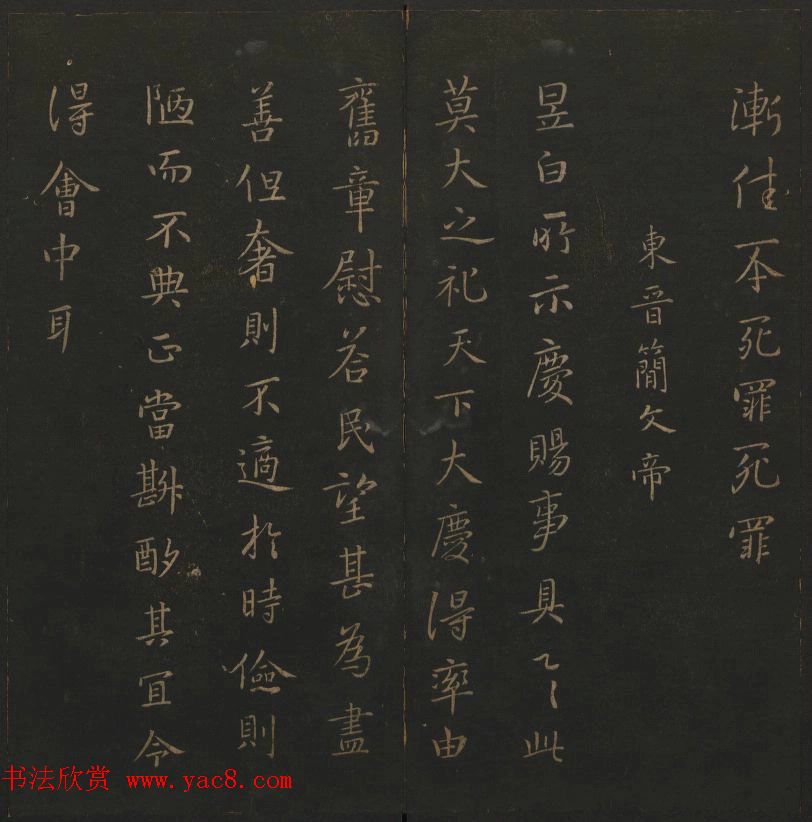 漸佳不死罪死罪
東晉簡文帝
昱白所示慶賜事具了〻此
莫大之祀天下大慶得率由
舊章慰荅民望甚為盡
善但奢則不適於時儉則
陋而不典正當斟酌其宜令
得會中耳
书法欣赏 www.yac8.com